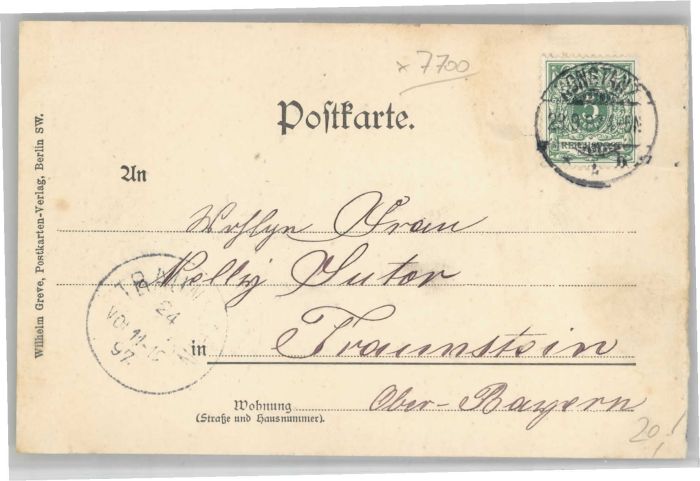 x 7700
CONSTANZ
5
REICHSPOST
Postkarte.
An
Wohlgn Frau
Nelly Sutor
in Traunstein
Ober-Bayern
Wohnung
(Straße und Hausnummer).
Wilhelm Greve, Postkarten-Verlag, Berlin SW.
24
VOR. 11-12
97.
20,